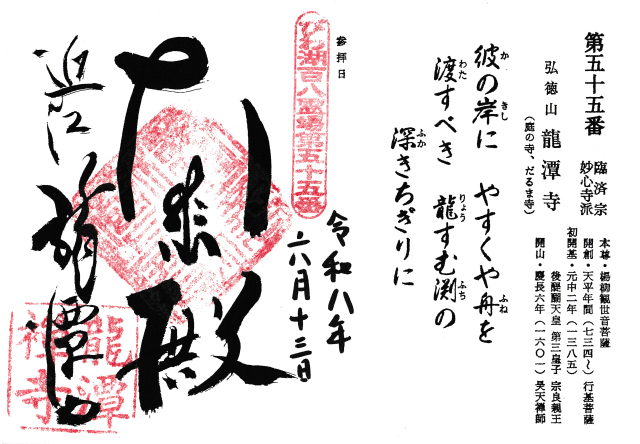 第五十五番
臨済宗
妙心寺派
弘徳山 龍潭寺
(庭の寺、だるま寺)
本尊・楊柳観世音菩薩
開創・天平年間(七三四~)行基菩薩
初開基・元中二年(一三八五)
後醍醐天皇 第三皇子 宗良親王
開山・慶長六年(一六〇一)昊天禅師
彼の岸に やすくや舟を
かきしふね
渡すべき 龍すむ渕の
わたりょうふち
深きちぎりに
ふか
参拝日
びわ湖百八霊場第五十五番
令和八年
六月十三日
殿
近江 龍潭寺
龍潭
禅寺